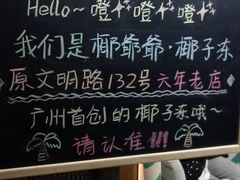 Hello~噔噔噔
我们是椰爺爺·椰子冻
原文明路132号六年老店
广州首创的椰子冻哦~
请认准!!!